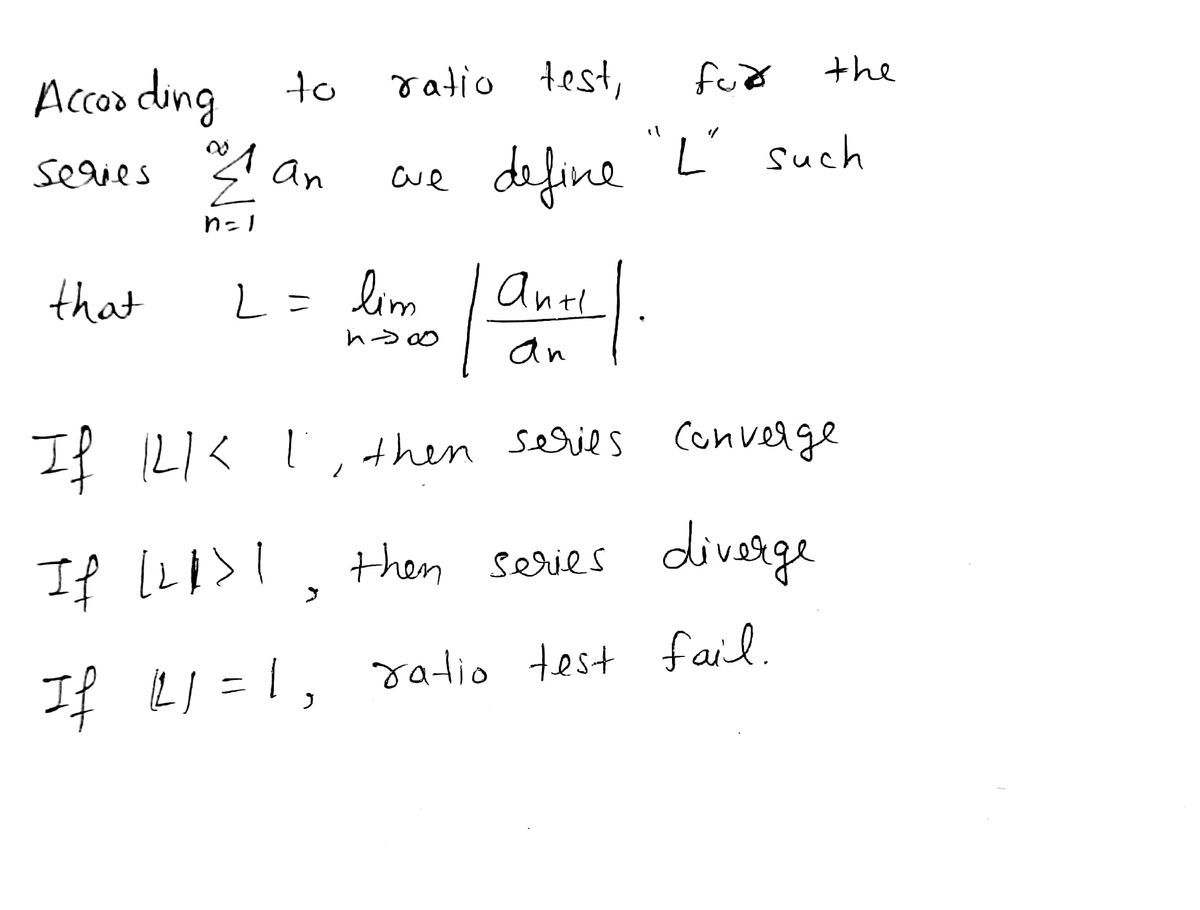 According to ratio test, for the
series ∞∑n=1 an we define "L" such
that L = lim n→∞ |an+1/an|.
If |L| < 1, then series converge
If |L| > 1, then series diverge
If |L| = 1, ratio test fail.